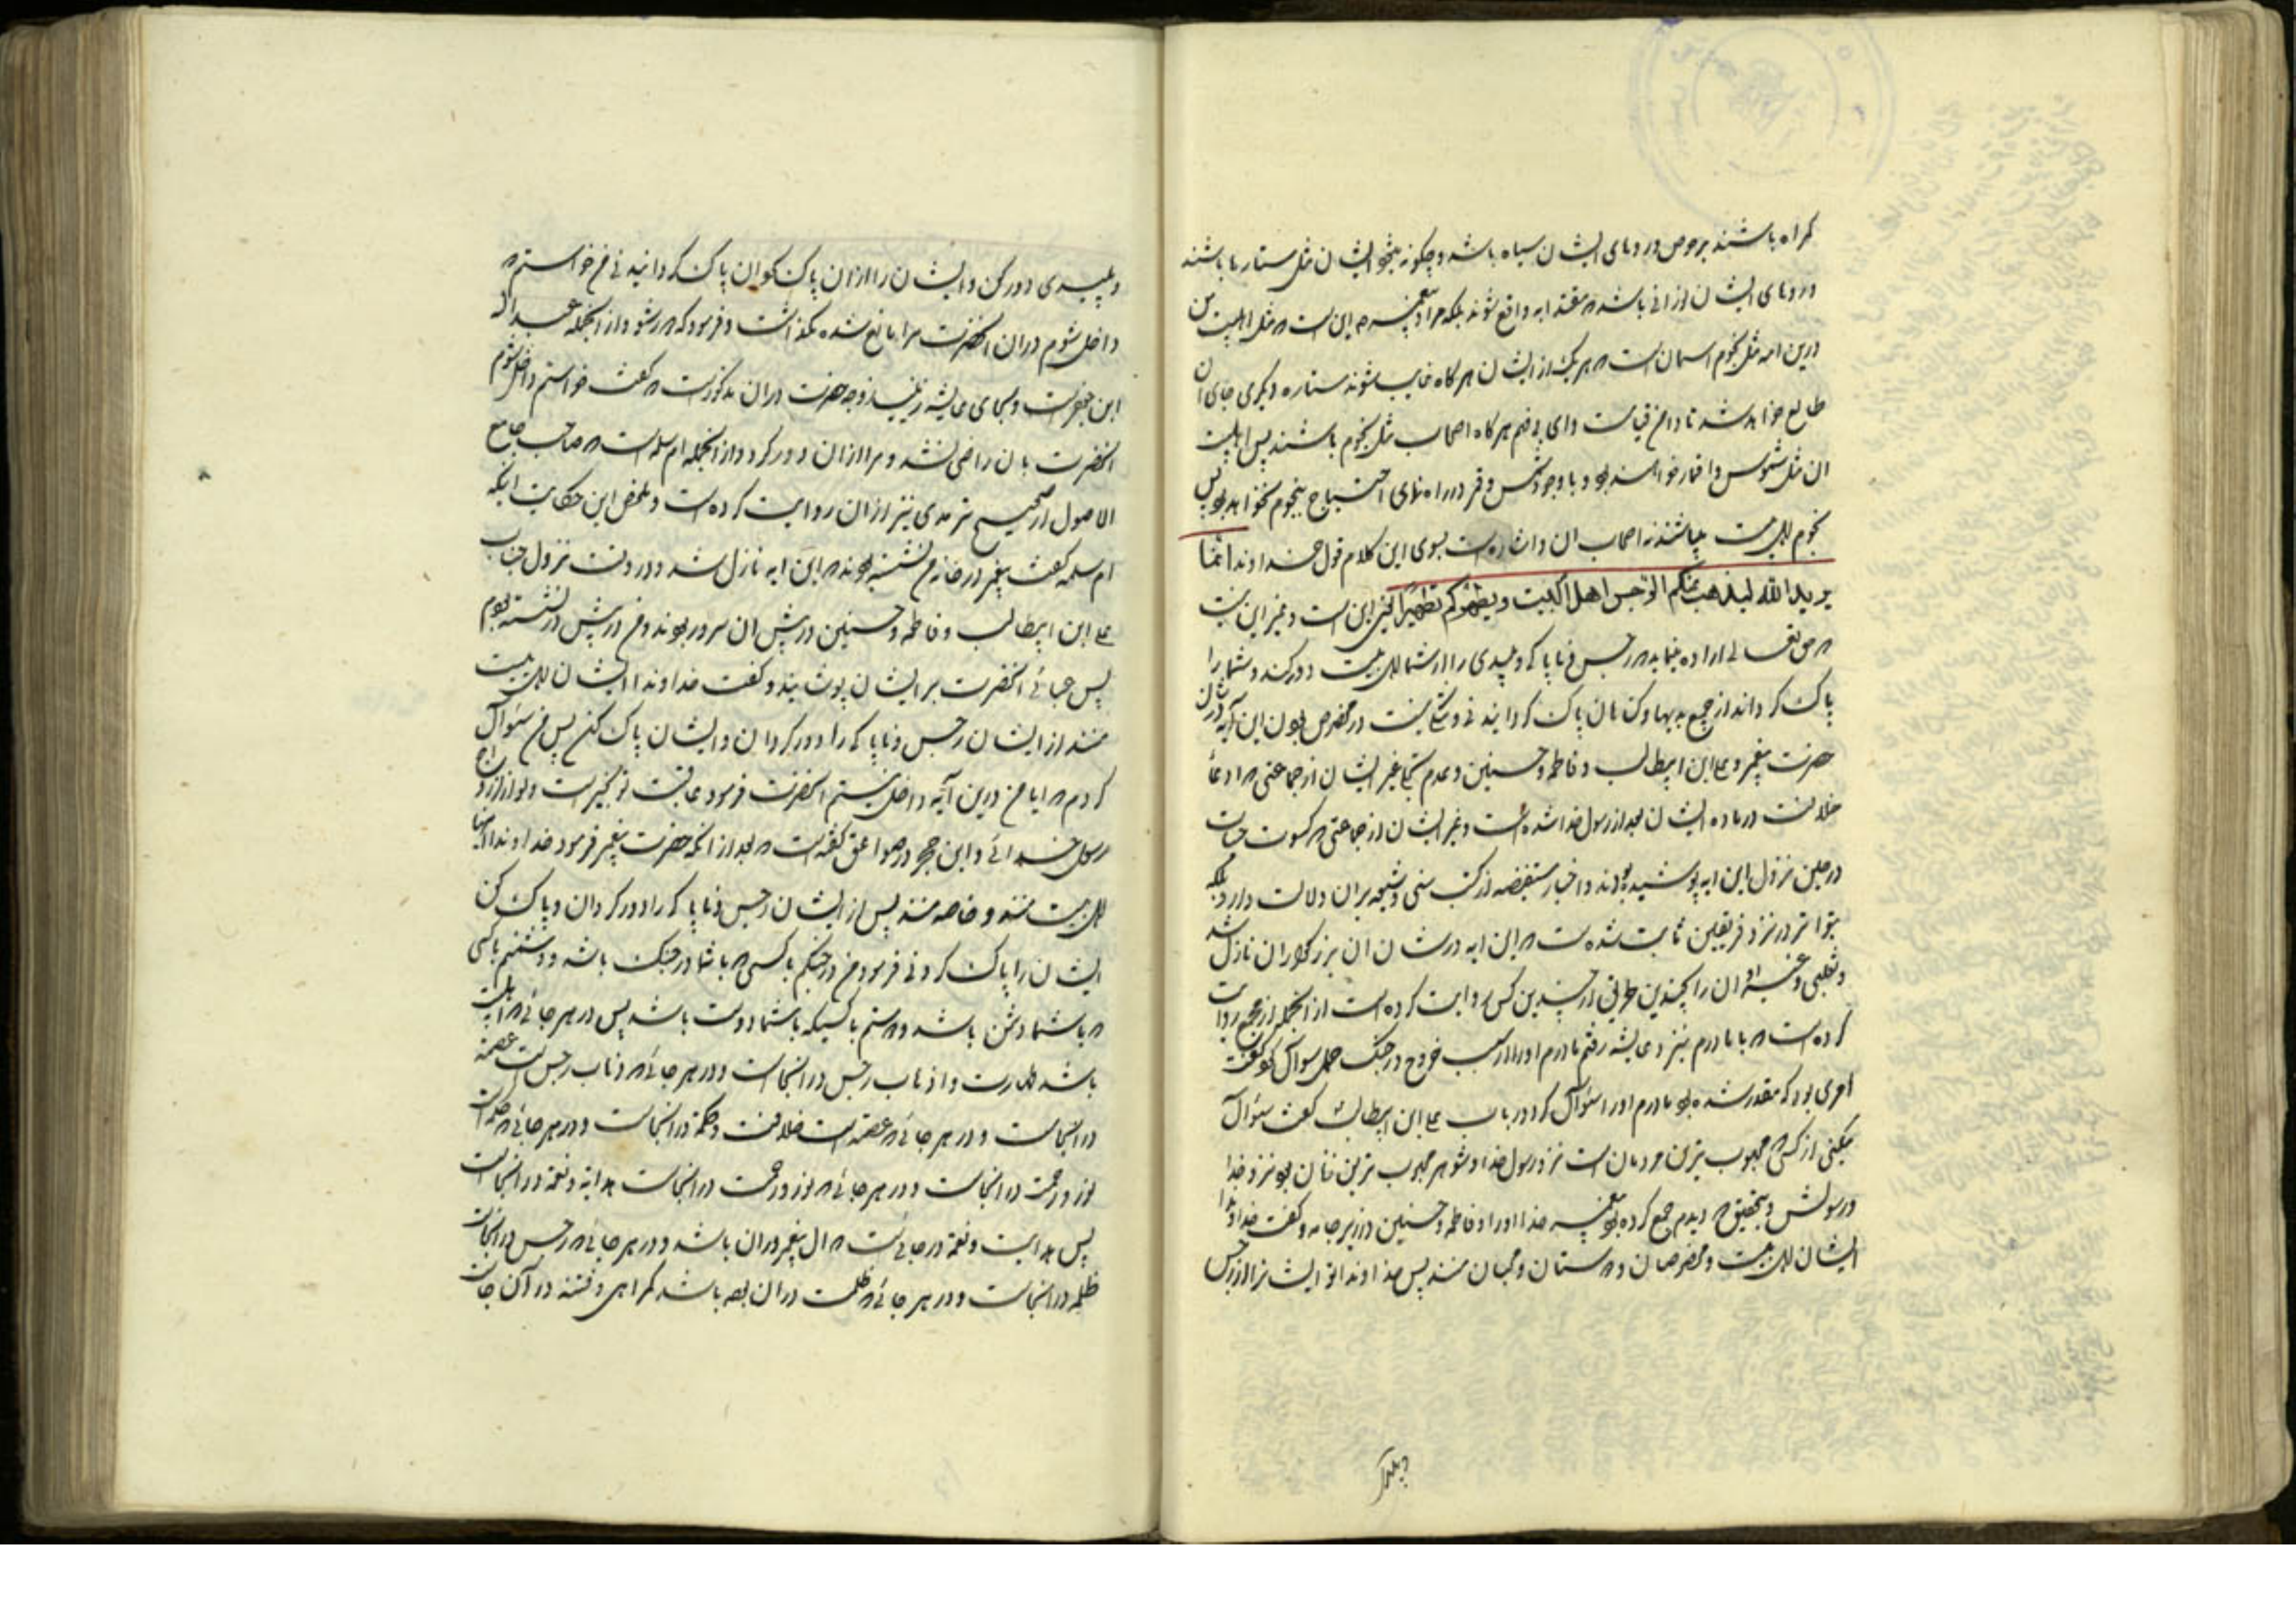 گمراه باشند بر حوض و رویهای ایشان سیاه باشد و چگونه همچو ایشان مثل ستارها باشند
و رویهای ایشان نورانی باشد که مقتدا به واقع شوند بلکه مراد پیغمبر ص این است که مثل اهلبیت من
درین امه مثل نجوم آسمان است که هر یک از ایشان هر گاه غایب شوند ستاره دیگری جای آن
طالع خواهد شد تا دامن قیامت و ای بر فهم هرگاه اصحاب مثل نجوم باشند پس اهلبیت
ان مثل شموس و اقمار خواهند بود و با وجود شمس و قمر در راه نمای احتیاج بنجوم نخواهد بود پس
نجوم اهل بیت میباشند نه اصحاب ان و اشاره است بسوی این کلام قول خداوند انّما
یرید الله لیذهب عنکم الرّجس اهل البیت و یطهّرکم تطهیرا یعنی این است و غیر این نیست
که حق تعالی اراده مینماید که رجس و ناپاکی و پلیدی را از شما اهل بیت دور کند و شما را
پاک گرداند از جمیع بدیها و گناهان پاک گردانیدنی و شکی نیست در مخصوص بودن این آیه در شان
حضرت پیغمبر و علی ابن ابیطالب و فاطمه و حسنین و عدم غیر ایشان از جماعتی که ادعا
خلافت در ماده ایشان بعد از رسول خدا شده است و غیر ایشان از جماعتی که کسوت حیات
در حین نزول این ایه پوشیده بودند و اخبار مستفیضه از کتب سنی و شیعه بران دلالت دارد بلکه
بتواتر در نزد فریقین ثابت شده است که این ایه در شان ان بزرگواران نازل شد
و ثعلبی و غیر او ان را بچندین طریق از چندین کس روایت کرده است از انجمله از مجمع روایت
کرده است که با مادرم بنزد عایشه رفتم مادرم او را از سبب خروج در جنگ جمل سوال کرد گفت
امری بود که مقدر شده بود مادرم او را سئوال کرد در باب علی ابن ابیطالب گفت سئوال
میکنی از کسی که محبوب ترین مردمان است نزد رسول خدا و شوهر محبوب ترین زنان بود نزد خدا
و رسولش و بتحقیق که دیدم جمع کرده بود پیغمبر خدا او را و فاطمه و حسنین در زیر جامه و گفت خداوندا
ایشان اهل بیت و مخصوصان و دوستان و محبان منند پس خداوندا تو ایشان را از رجس
و پلیدی
و پلیدی دور کن و ایشان را از ان پاک کن ان پاک گردانیدنی من خواستم که
داخل شوم در ان انحضرت مرا مانع شده نگذاشت و فرمود که دور شو و از انجمله عبد الله
ابن جعفر است و بجای عایشه زینب زوجه حضرت در ان مذکور است که گفت خواستم داخل شوم
انحضرت بان راضی نشد و مرا از ان دور کرد و از انجمله ام سلمه است که صاحب جامع
الاصول از صحیح ترمدی نیز از ان روایت کرده است و ملخص این حکایت اینکه
ام سلمه گفت پیغمبر در خانه من نشسته بودند که این ایه نازل شد و در وقت نزول جناب
علی ابن ابیطالب و فاطمه و حسنین در پیش ان سرور بودند و من در پیش در نشسته بودم
پس عبائی انحضرت بر ایشان پوشیند و گفت خداوندا ایشان اهل بیت
منند از ایشان رجس و ناپاکی را دور گردان و ایشان پاک کن پس من سئوال
کردم که ایا من درین آیه داخل نیستم انحضرت فرمود عاقبت تو بخیر است و تو از ازواج
رسول خدائی و ابن حجر در صواعق گفته است که بعد از انکه حضرت پیغمبر فرمود خداوندا اینها
اهل بیت منند و خاصه منند پس از ایشان رجس و ناپاکی را دور گردان و پاک کن
ایشان را پاک کردنی فرمود من در جنگم با کسی که با شما در جنگ باشد و دشمنم با کسی
که با شما دشمن باشد و دوستم با کسیکه با شما دوست باشد پس در هر جائی که اهلبیت
باشد طهارت و اذهاب رجس در انجاست و در هر جائی که ذهاب رجس است عصمة
در انجاست و در هر جائی که عصمة است خلافت و حکمة در انجاست و در هر جائی که حکمة است
نور و رحمت در انجاست و در هر جائی که نور و رحمت در انجاست هدایة و نعمة در انجاست
پس هدایت و نعمة در جائی است که ال پیغمبر در ان باشد و در هر جائی که رجس در انجاست
ظلمة در انجاست و در هر جائی که ظلمت در ان بقعه باشد گمراهی و فتنه در آن جاست